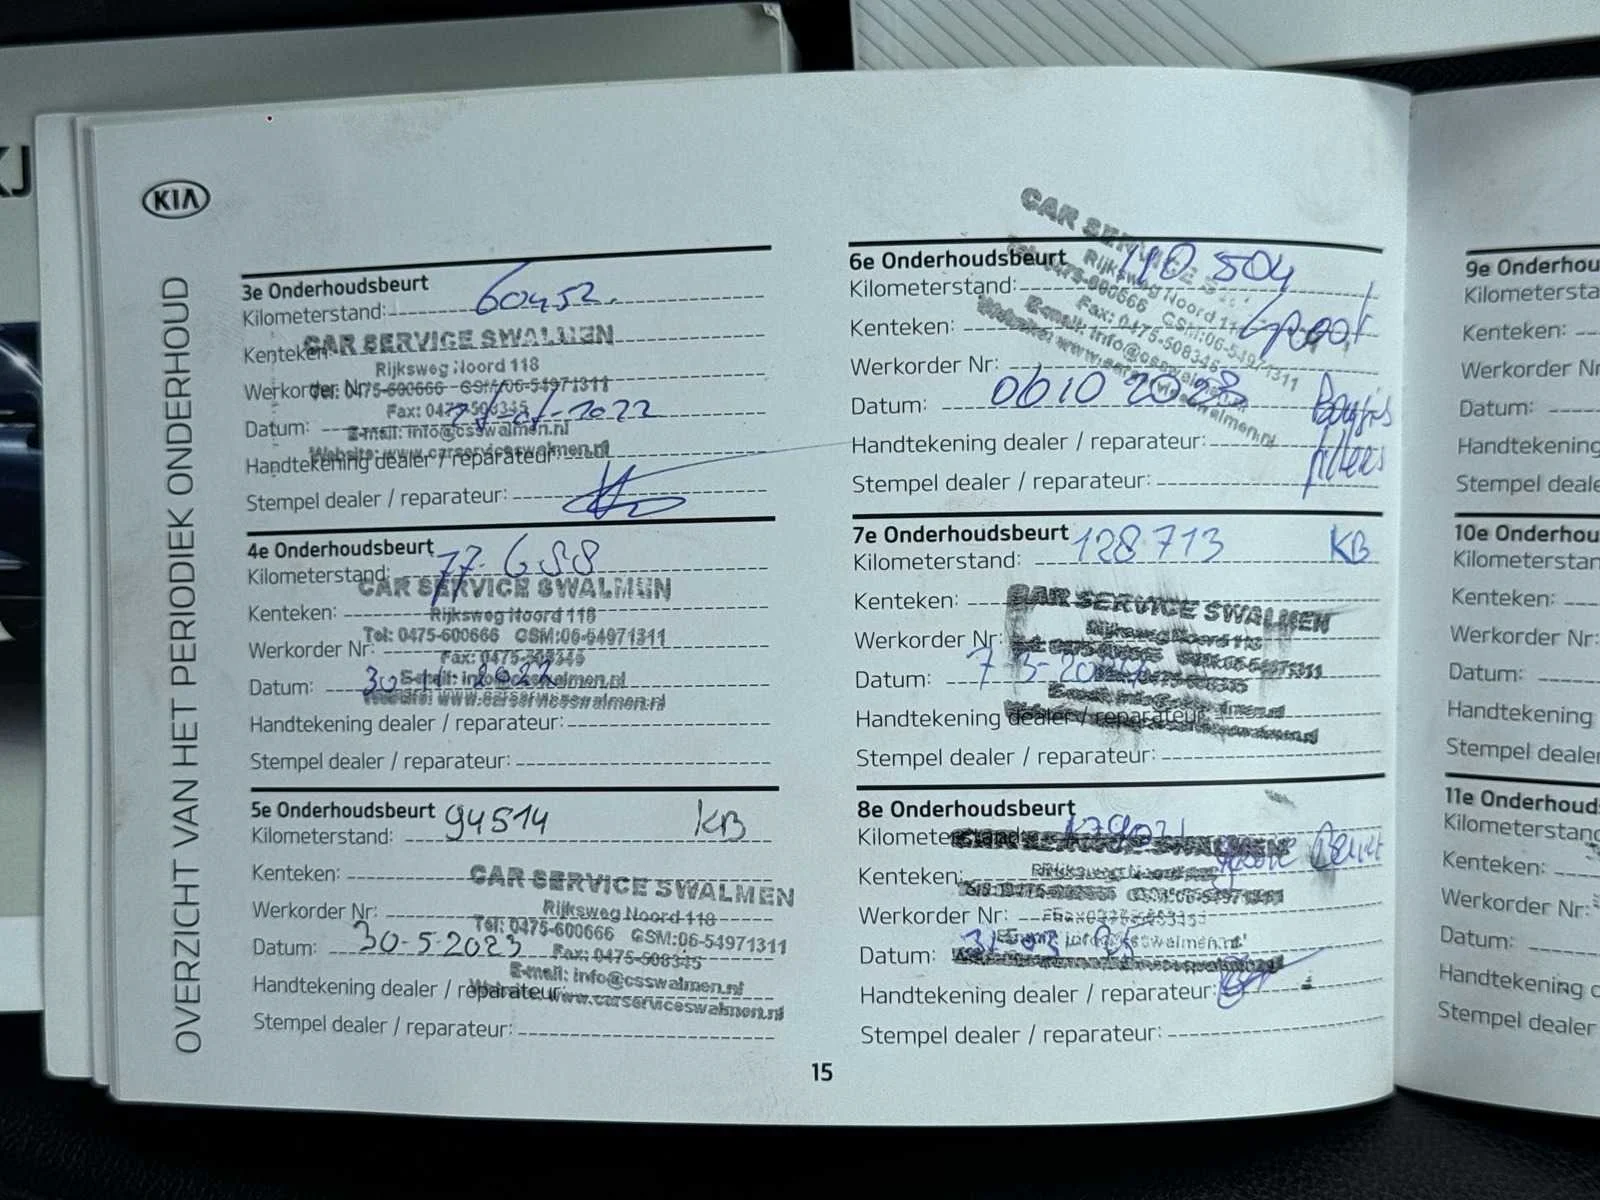 KIA
OVERZICHT VAN HET PERIODIEK ONDERHOUD
3e Onderhoudsbeurt
Kilometerstand: 60452
CAR SERVICE SWALMEN
Kenteken:
Rijksweg Noord 118
Werkorder Nr:
Tel: 0475-600666 GSM:06-54971311
Fax: 0475-508345
Datum: 2022
E-mail: info@csswalmen.nl
Website: www.carserviceswalmen.nl
Handtekening dealer / reparateur:
Stempel dealer / reparateur:
4e Onderhoudsbeurt
Kilometerstand: 77.688
CAR SERVICE SWALMEN
Kenteken:
Rijksweg Noord 118
Tel: 0475-600666 GSM:06-54971311
Werkorder Nr:
Fax: 0475-508345
Datum: 30 11 2022
E-mail: info@csswalmen.nl
Website: www.carserviceswalmen.nl
Handtekening dealer / reparateur:
Stempel dealer / reparateur:
5e Onderhoudsbeurt
Kilometerstand: 94514 KB
Kenteken:
CAR SERVICE SWALMEN
Rijksweg Noord 118
Werkorder Nr:
Tel: 0475-600666 GSM:06-54971311
Datum: 30-5-2023
Fax: 0475-508345
E-mail: info@csswalmen.nl
Handtekening dealer / reparateur:
Website: www.carserviceswalmen.nl
Stempel dealer / reparateur:
6e Onderhoudsbeurt
CAR SERVICE
Kilometerstand: 110 504
Rijksweg Noord 118
0475-600666 GSM:06-54971311
Fax: 0475-508345
E-mail: info@csswalmen.nl
Website: www.carserviceswalmen.nl
Kenteken: Groot
Werkorder Nr:
Datum: 06 10 2023
Bougies
filters
Handtekening dealer / reparateur:
Stempel dealer / reparateur:
7e Onderhoudsbeurt
Kilometerstand: 128713 KB
Kenteken:
CAR SERVICE SWALMEN
Rijksweg Noord 118
Werkorder Nr:
Datum: 7
Handtekening dealer / reparateur:
Stempel dealer / reparateur:
8e Onderhoudsbeurt
Kilometerstand:
SERVICE SWALMEN
Kenteken: Beurt
Werkorder Nr:
Datum:
Handtekening dealer / reparateur:
Stempel dealer / reparateur:
15
9e Onderhou
Kilometersta
Kenteken:
Werkorder Nr
Datum:
Handtekening
Stempel deale
10e Onderhou
Kilometerstan
Kenteken:
Werkorder Nr:
Datum:
Handtekening
Stempel dealer
11e Onderhoud
Kilometerstand
Kenteken:
Werkorder Nr:
Datum:
Handtekening d
Stempel dealer